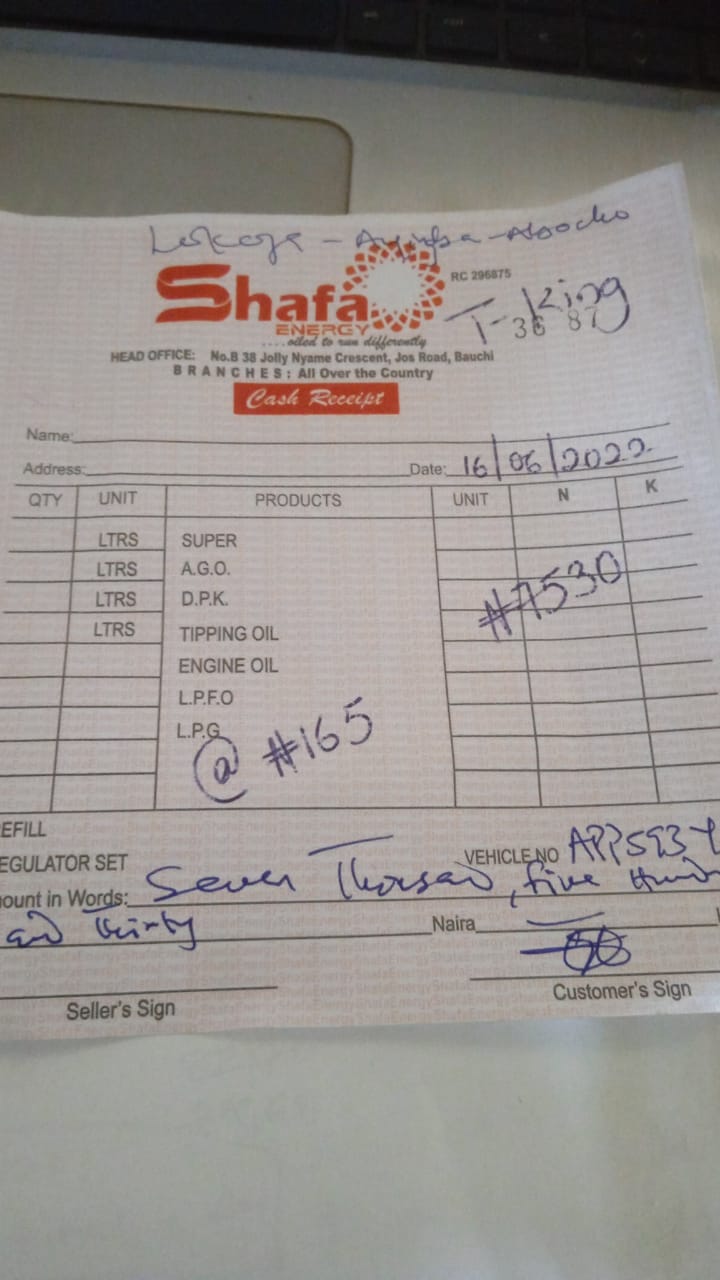 Shafa
RC 296875
T-King
ENERGY
36 87
....oiled to run differently
HEAD OFFICE: No.B 38 Jolly Nyame Crescent, Jos Road, Bauchi
BRANCHES: All Over the Country
Cash Receipt
Name:
Address: Date: 16/06/2022
QTY UNIT PRODUCTS UNIT N K
LTRS SUPER
LTRS A.G.O.
LTRS D.P.K. #7530
LTRS TIPPING OIL
ENGINE OIL
L.P.F.O
L.P.G
@ #165
EFILL
EGULATOR SET VEHICLE NO
ount in Words: Seven Thousand, five Hund
and Thirty Naira
Seller's Sign Customer's Sign